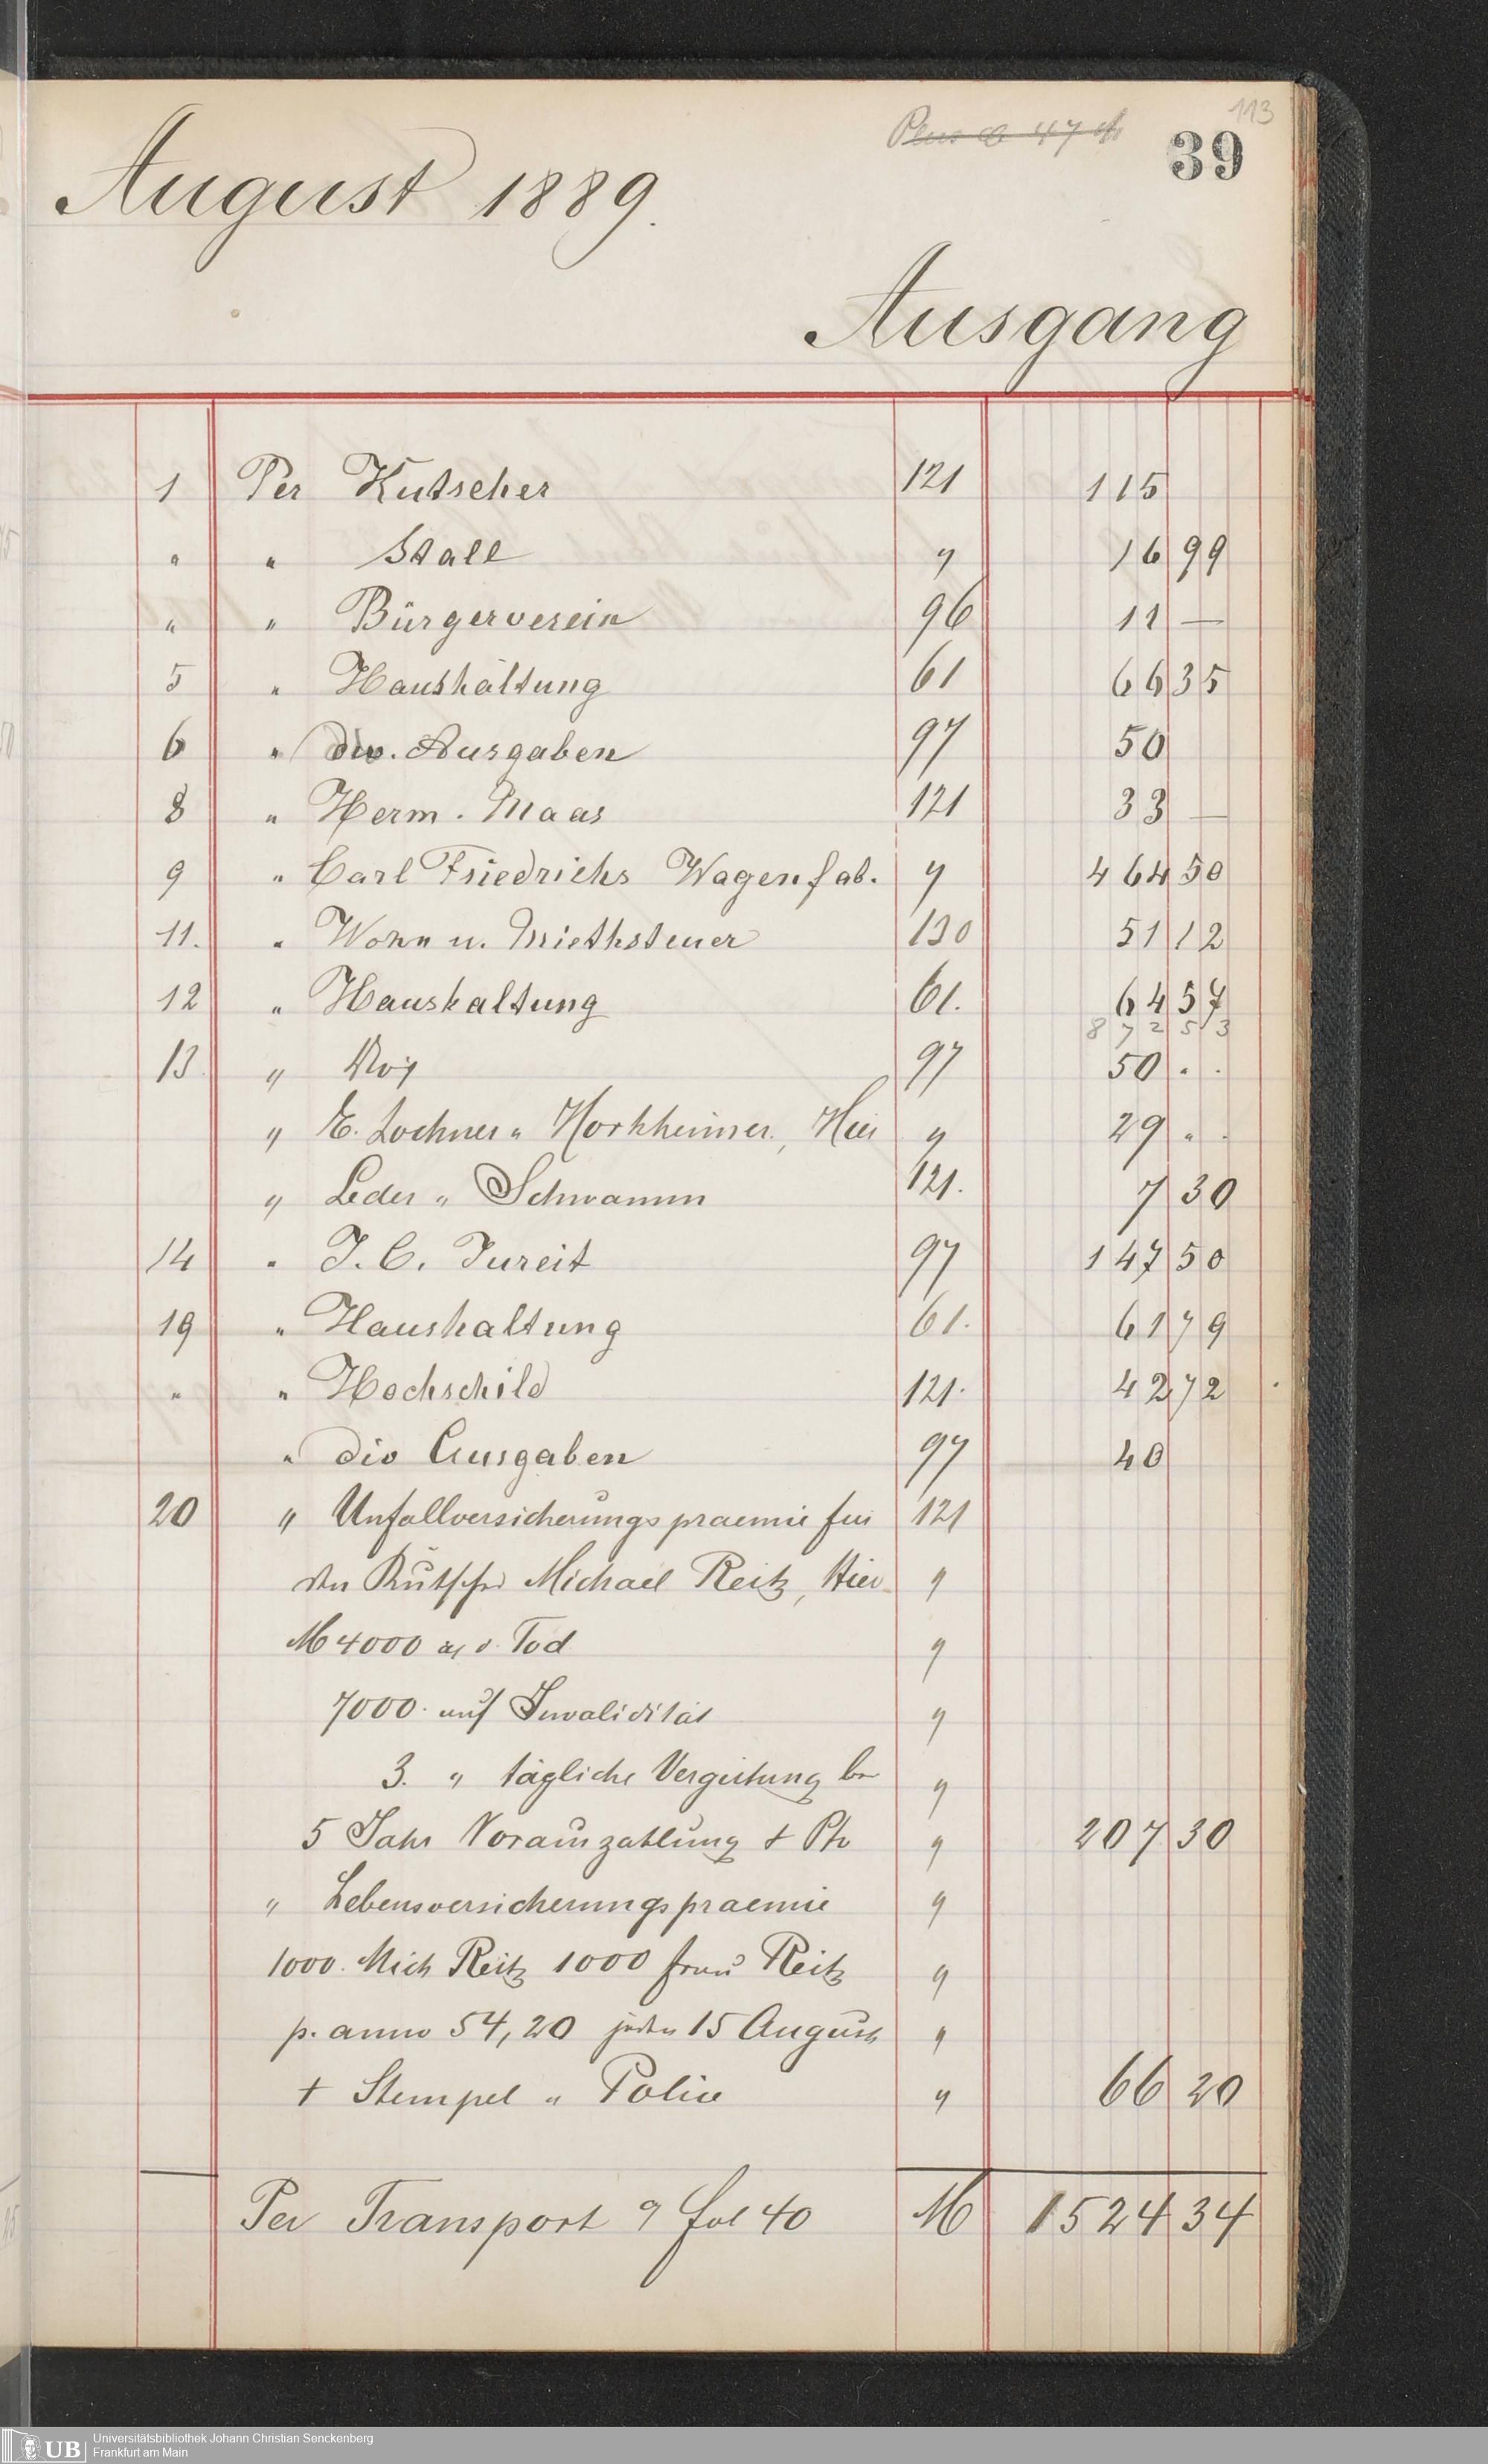 113
39
August 1889.
Ausgang
1 Per Kutscher 121 115
" " Stall " 16 99
" " Bürgerverein 96 11 —
5 " Haushaltung 61 66 35
6 " div. Ausgaben 97 50
8 " Herm. Maas 121 33 —
9 " Carl Friedrichs Wagenfab. " 464 50
11. " Wohn u. Miethsteuer 130 51 12
12 " Haushaltung 61. 64 57
872 53
13 " 97 50 . .
" E. Lochner " Horkheimer, Hier " 29 " .
" Leder " Schwamm 121. 7 30
14 " J. C. Jureit 97 147 50
19 " Haushaltung 61. 61 79
" " Hochschild 121. 42 72
" div Ausgaben 97 40
20 " Unfallversicherungspraemie für 121
den Kutscher Michael Reitz, Hier "
M 4000 a. d. Tod "
7000. auf Invalidität "
3. " tägliche Vergütung "
5 Jahr Vorauszahlung + "  207 30
" Lebensversicherungspraemie "
1000. Mich Reitz 1000 frau Reitz "
p. anno 54,20 jeden 15 August "
+ Stempel " Police " 66 20
Per Transport a fol 40 M 1524 34
UB
Universitätsbibliothek Johann Christian Senckenberg
Frankfurt am Main